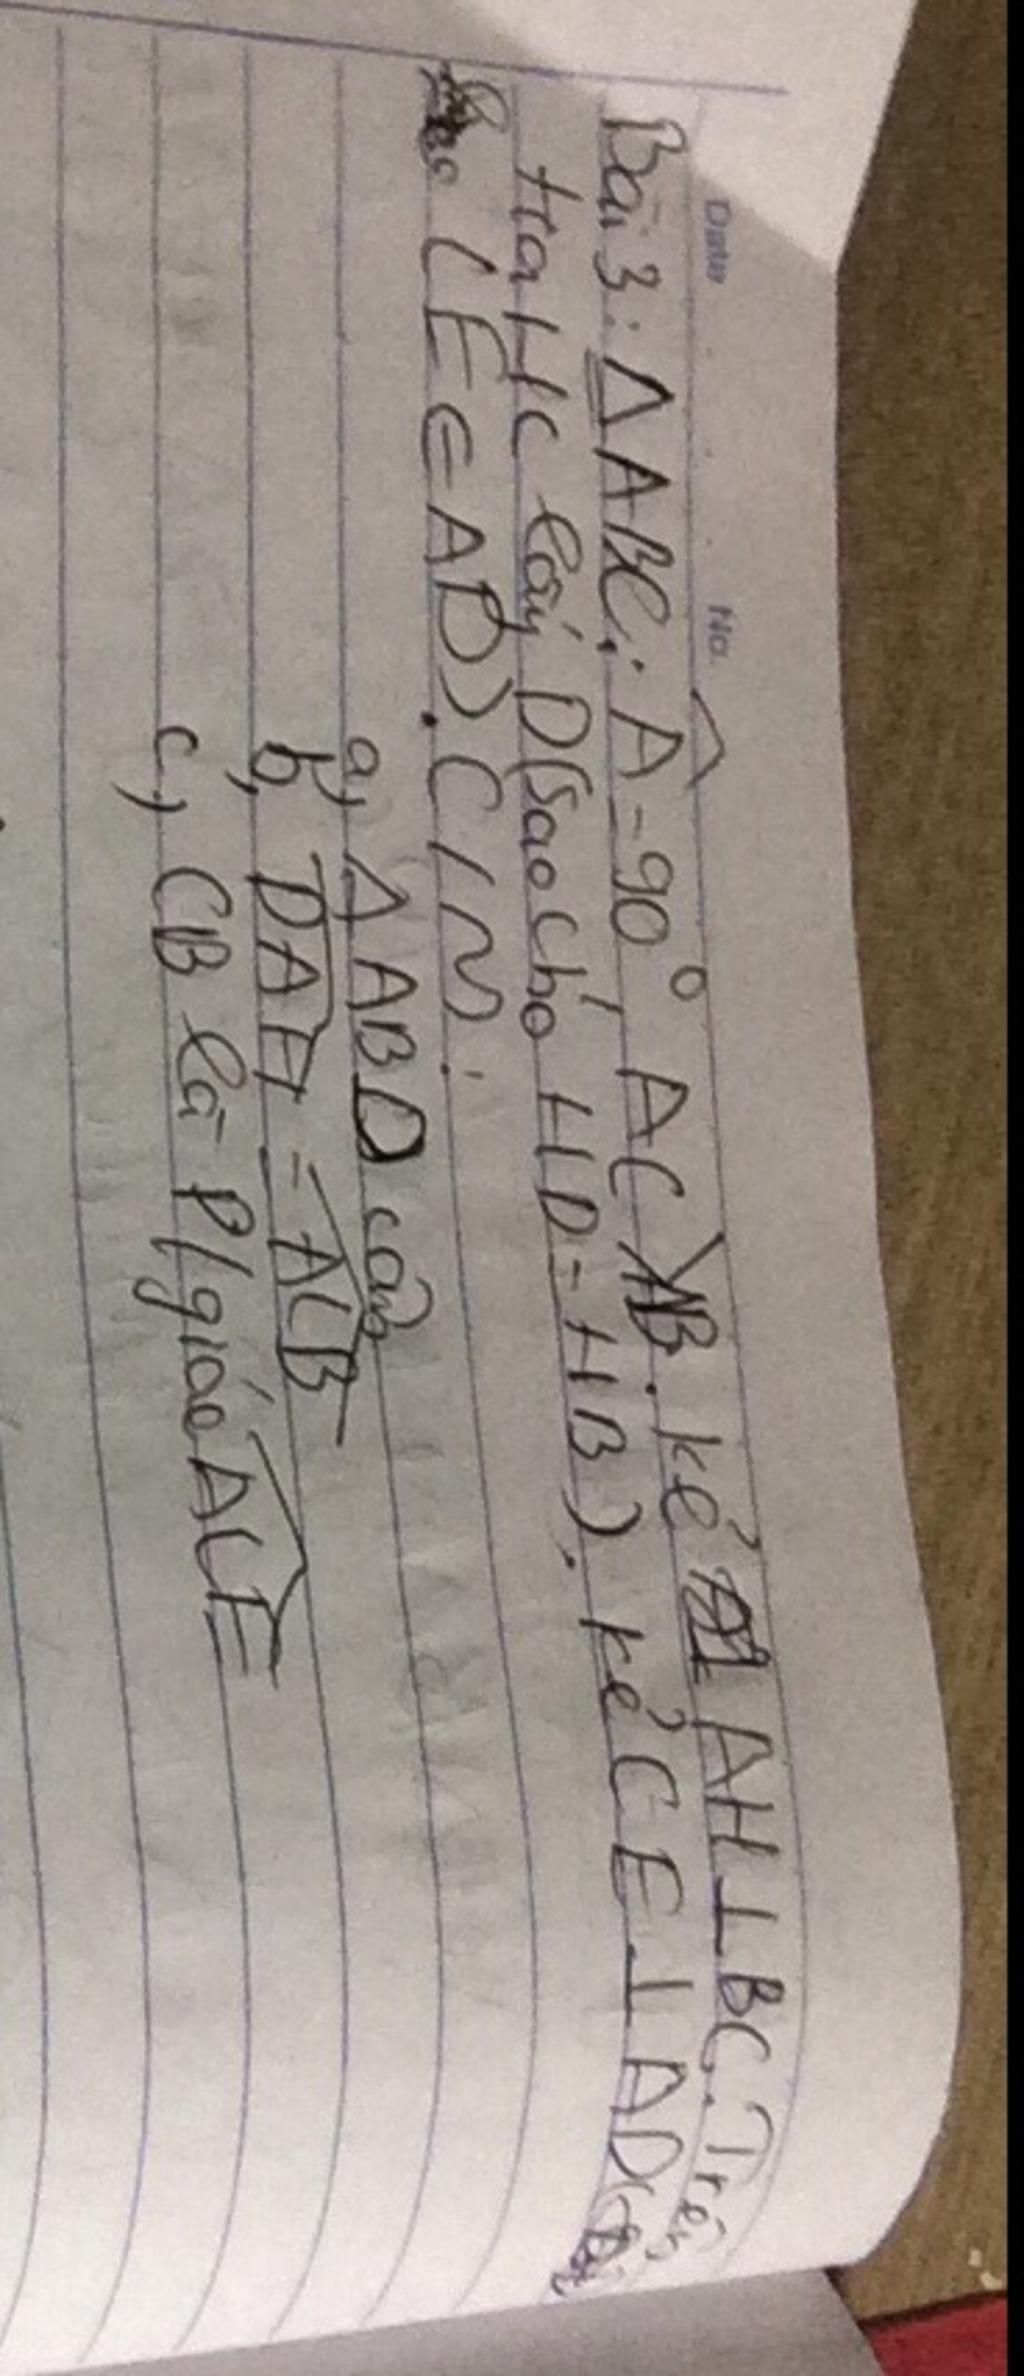 Date No.
Bài 3: ΔABC: Â=90°, AC>AB. kẻ AH⊥BC. Trên
tia HC lấy D(sao cho HD=HB). kẻ CE⊥AD
(E∈AD). C/M:
a, ΔABD cân
b, DAH = ACB
c, CB là P/giác ACE